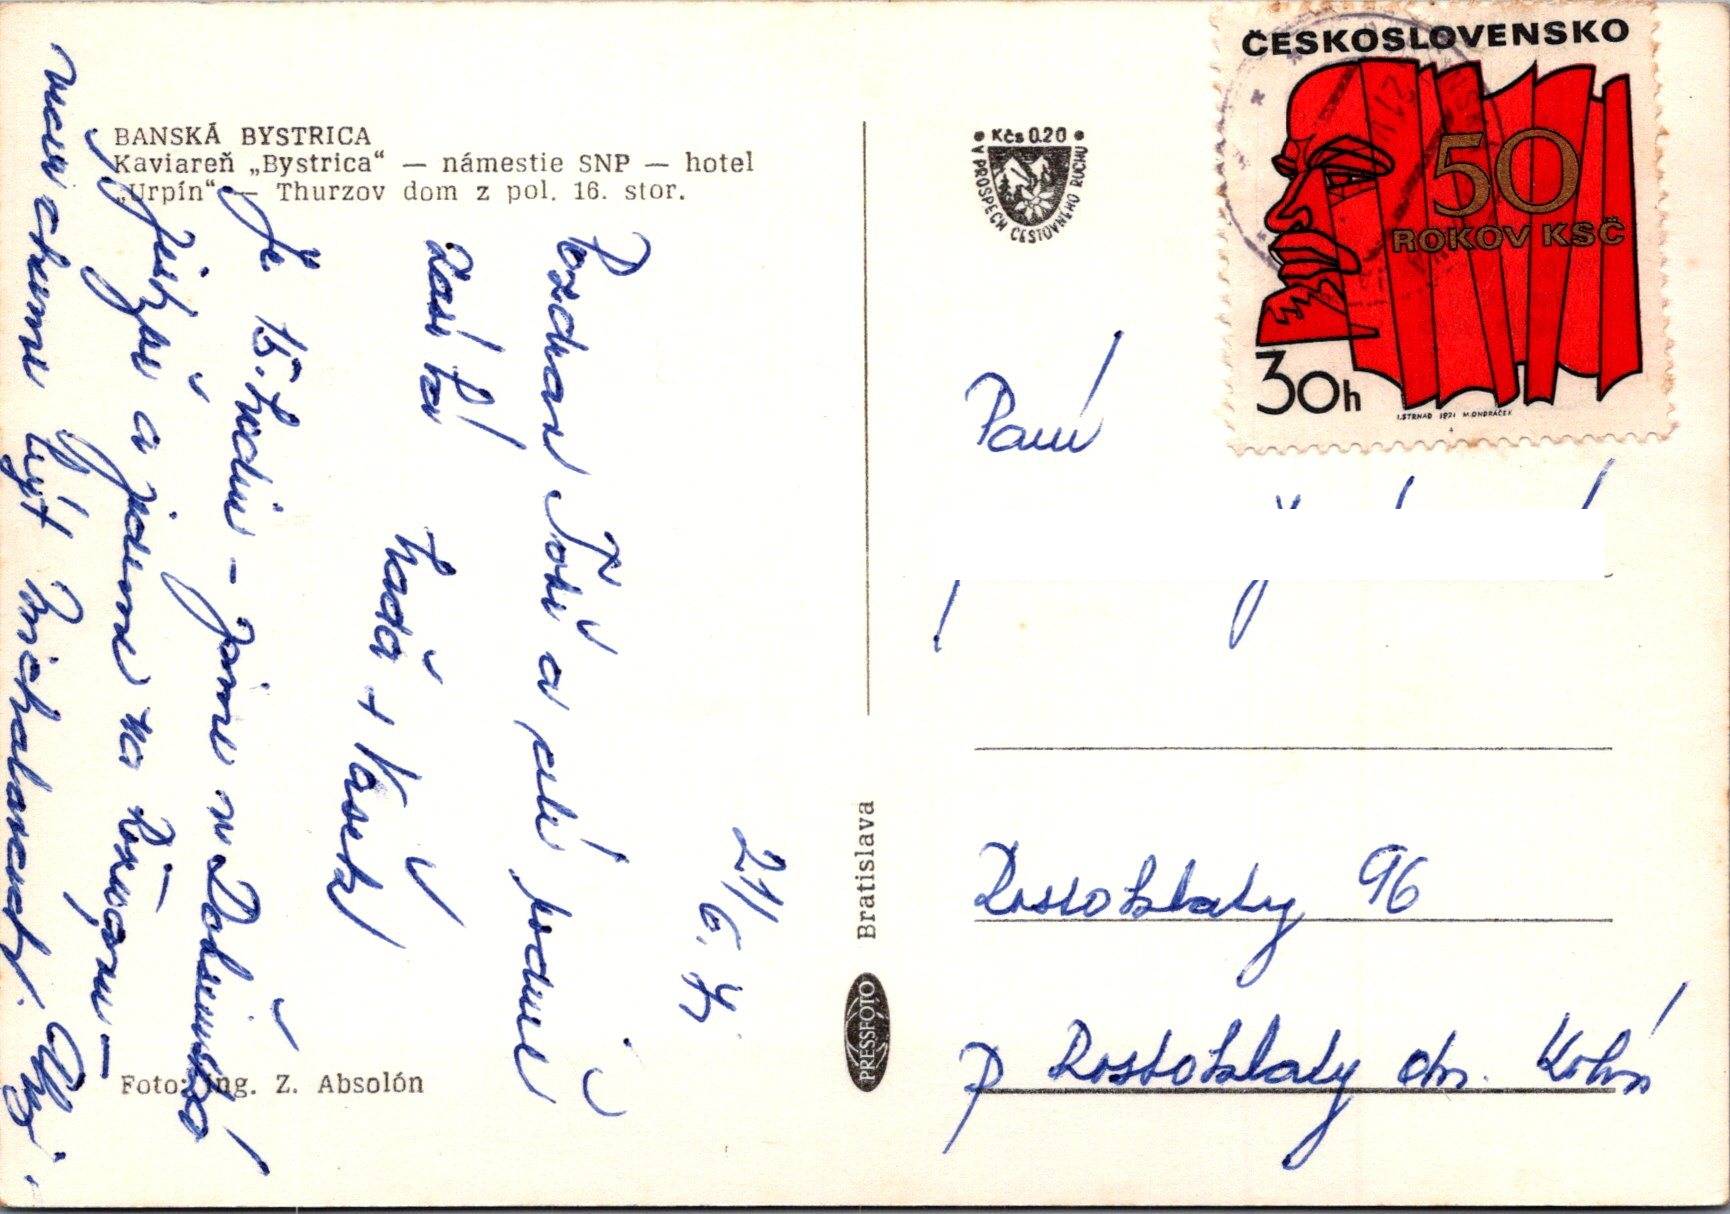 BANSKÁ BYSTRICA
Kaviareň „Bystrica“ — námestie SNP — hotel
„Urpín“ — Thurzov dom z pol. 16. stor.
21/6.71
Pozdrav Toši a celé rodině
zasílá
Laďa + Vašek
Je 15. hodin - jsme v Dobšinské
jeskyni a jedeme na
večer chceme být Michalovcích.
Foto: Ing. Z. Absolón
Bratislava
PRESSFOTO
• Kčs 0.20 •
V PROSPECH CESTOVNÉHO RUCHU
ČESKOSLOVENSKO
50
ROKOV KSČ
30h
I. STRNAD 1971 M. ONDRÁČEK
Paní
Rostoklaty 96
p Rostoklaty okr. Kolín